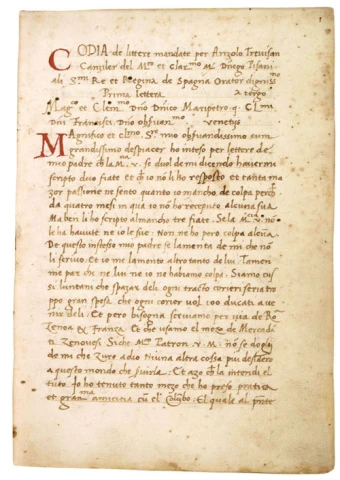 COPIA de littere mandate per Anzolo Trevisan
Canzilier del M.co et Clar.mo M. Dñego Pisani
ali Ser.mi Re et Regina de Spagna Orator
Prima lettera a tergo
Mag.co et Clem.mo Dño Dñico Maripetro q. Cl.mi
Dñi Francisci Dño obser.mo Venetijs
Magnifico et clmo Sr mio obseruandissimo cum
grandissimo despiacer ho inteso per lettere de
mio padre che la M. V. se duol de mi dicendo hauermi
scripto duo fiate et che io nõ li ho resposto et tanta ma
zor passione ne sento quanto io mancho de colpa perche
da quatro mesi in qua io nõ ho receputo alcuna sua
Ma ben li ho scripto almancho tre fiate. Se la M. V. nõ
le ha hauute ne io le sue. Non ne ho pero colpa alcuna.
De questo instesso mio padre se lamenta de mi che nõ
li scriuo. Et io me lamento altro tanto de lui. Tamen
me par che ne lui ne io ne habiamo colpa. Siamo cus
si luntani che spazar deli ogni tracto corrieri seria tro
ppo gran spesa. che ogni corier vol 100 ducati a ue
nir deli. Et pero bisogna seruiamo per uia de
Zenoa et Franza. Et che usamo el mezo de Mercada
ti Zenouesi. Siche M.co Patron. V. M. nõ se dogli
de mi che zuro a dio niuna altra cossa piu desidero
a questo mondo che seruirla. Et azo che la intendi el
tuto. Io ho tenuto tanto mezo che ho preso pratica
et gran.ma amicitia cũ el Colũbo. El quale al pñte